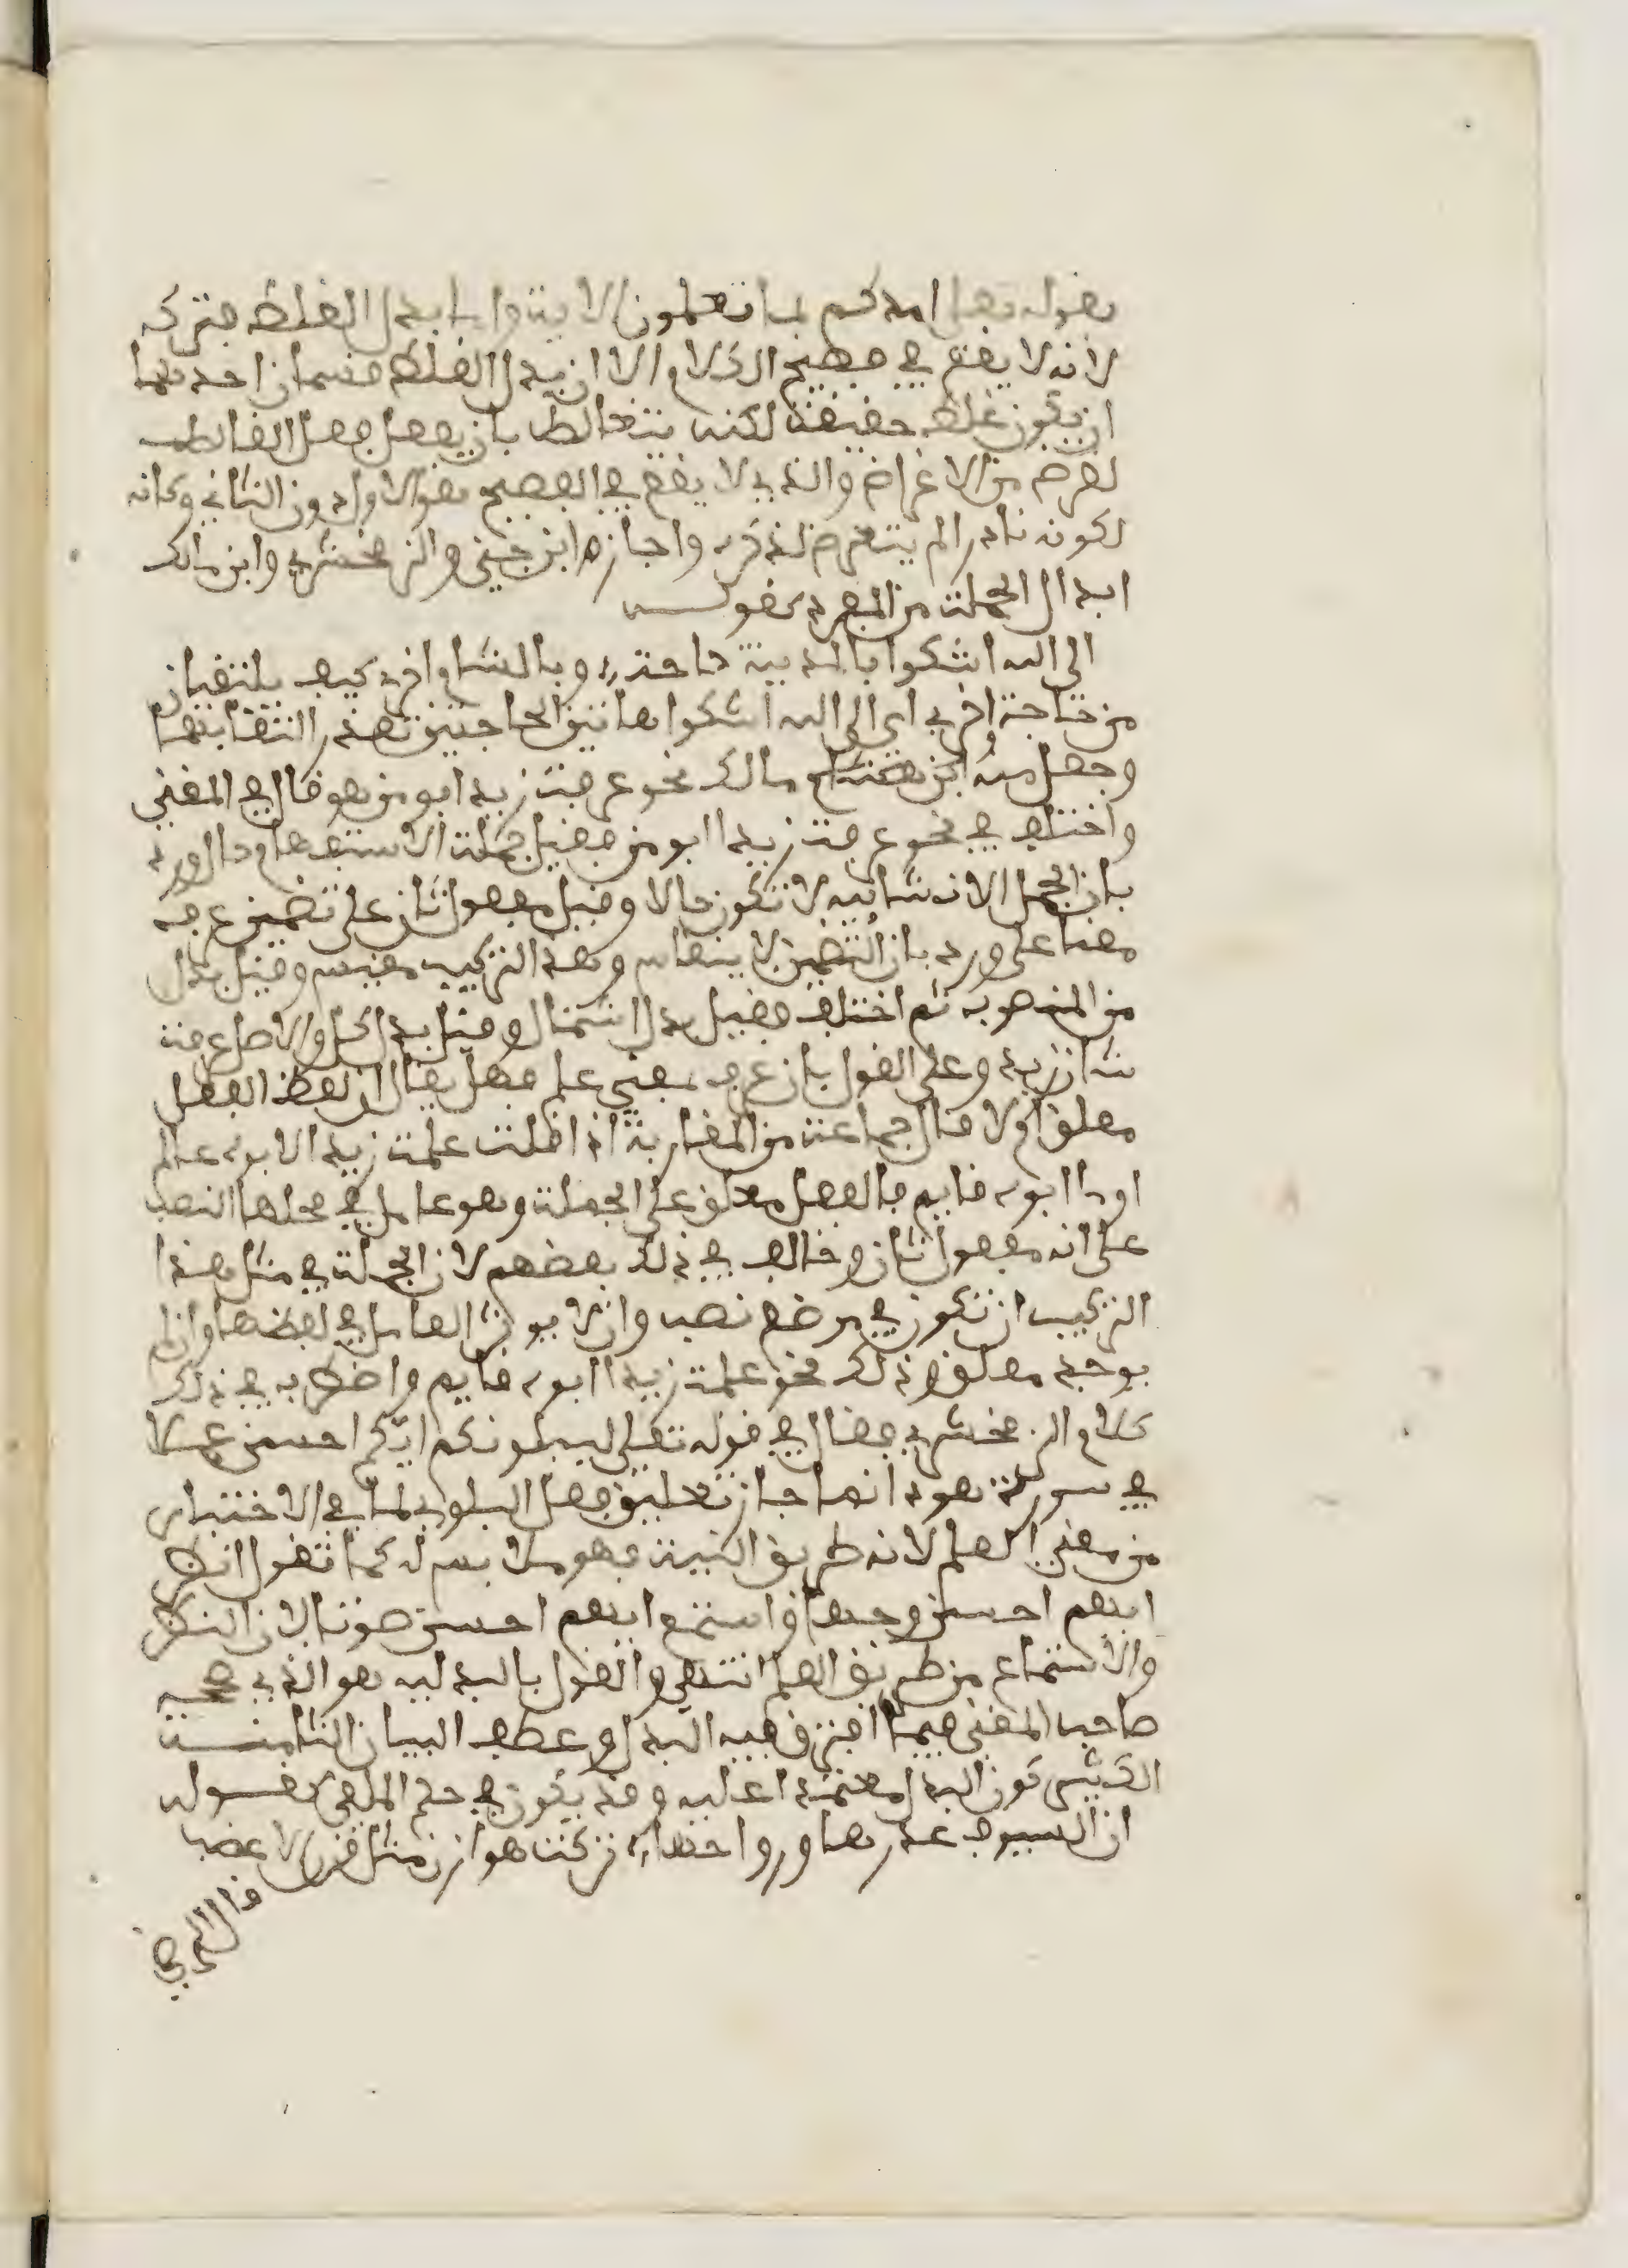 بقوله تعلى امدكم بما تعلمون الاية واما بدل الغلط فتركه
لانه لا يقع في فصيح الكلام الا ان بدل الغلط قسمان احدهما
ان يكون غلط حقيقة لكنه يتغالط بان يفعل فعل الغالط
لغرض من الاغراض والذي لا يقع في الفصيح هو الاول دون الثاني وكانه
لكونه نادرا لم يتعرض لذكره واجازه ابن جني والزمخشري وابن مالك
ابدال الجملة من المفرد كقولـــه
الى الله اشكوا بالمدينة حاجة وبالشام اخرى كيف يلتقيان
من حاجة اخرى اي الى الله اشكوا هاتين الحاجتين تعذر التقايهما
وجعل منه ابن مالك نحو عرفت زيد ابو من هو قال في المغني
واختلف في نحو عرفت زيدا ابو من فقيل جملة الاستفهام حال ورد
بان الجمل الانشائيه لا تكون حالا وقيل مفعول ثان على تضمين عرف
معنا علم ورد بان التضمين لا ينقاس وهذا التركيب مقيس وقيل بدل
من المنصوب ثم اختلف فقيل بدل اشتمال وقيل بدل كل والاصل عرفت
شان زيد وعلى القول بان عرف بمعنى علم فهل يقال ان لفظ الفعل
معلق ام لا قال جماعة من المغاربة اذا قلت علمت زيد الابوه عالم
او ما ابوه قايم فالفعل معلق على الجملة وهو عامل في محلها النصب
على انه مفعول ثان وخالف في ذلك بعضهم لان الجملة في مثل هذا
التركيب ان تكون في موضع نصب وان لا يوثر العامل في لفظها وان لم
يوجد معلق وذلك نحو علمت زيدا ابوه قايم واضطرب في ذلك
كلام الزمخشري فقال في قوله تعلى ليبلونكم ايكم احسن عملا
في سورة هود انما جاز تعليق فعل البلوى لما في الاختبار
من معنى العلم لانه طريق اليه فهو ملابس له كما تقول انظر
ايهم احسن وجها واستمع ايهم احسن صوتا لان النظر
والاستماع من طريق العلم انتهى والقول بالبدليه هو الذي صححه
صاحب المغني فيما افترق فيه البدل وعطف البيان الثامنـــة
الكثير كون البدل معتمدا عليه وقد يكون في حكم الملغى كقـــوله
ان السيوف غدوها ورواحها تركت هوازن مثل قرن الاعضب
قال المرضي